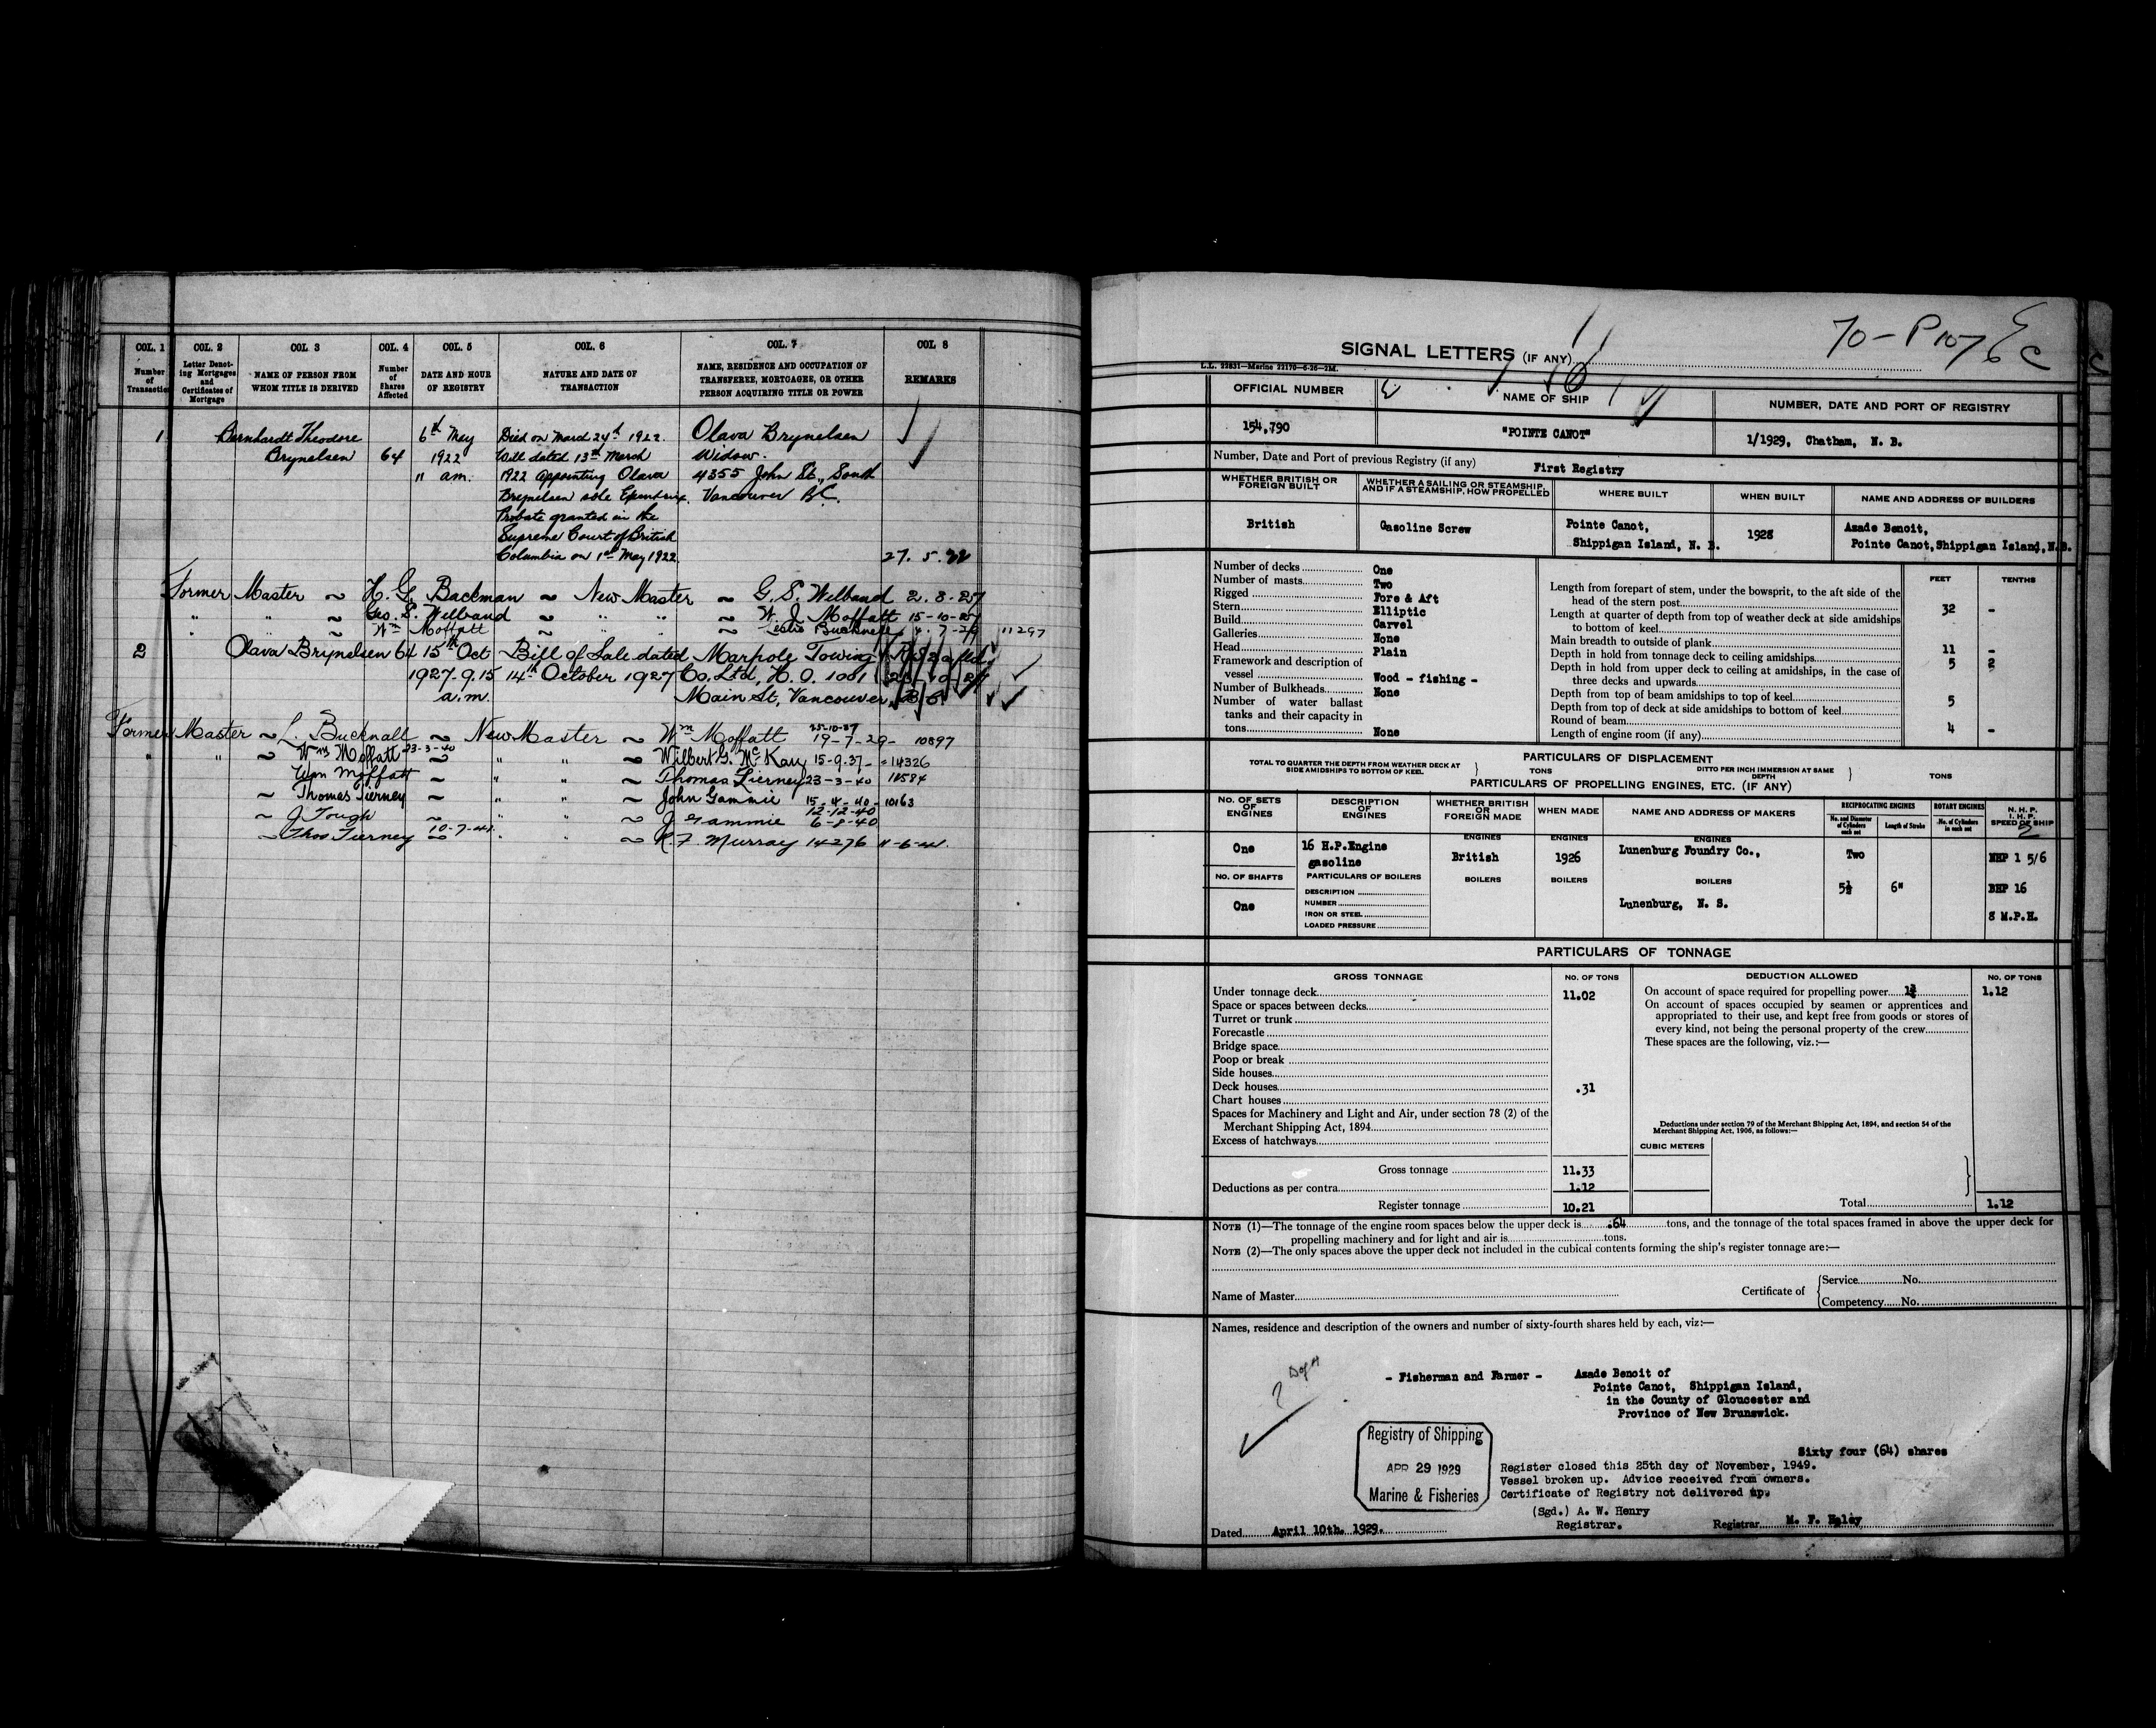 COL. 1 COL. 2 COL 3 COL. 4 COL. 5 COL. 6 COL. 7 COL 8
Number of Transaction
Letter Denoting Mortgages and Certificates of Mortgage
NAME OF PERSON FROM WHOM TITLE IS DERIVED
Number of Shares Affected
DATE AND HOUR OF REGISTRY
NATURE AND DATE OF TRANSACTION
NAME, RESIDENCE AND OCCUPATION OF TRANSFEREE, MORTGAGEE, OR OTHER PERSON ACQUIRING TITLE OR POWER
REMARKS
1 Bernhardt Theodore 6th May Died on March 24th 1922. Olava Brynelsen
Brynelsen 64 1922 Will dated 13th March Widow.
11 am. 1922 appointing Olava 4355 John St., South
Brynelsen sole Executrix. Vancouver B.C.
Probate granted in the
Supreme Court of British
Columbia on 1st May 1922. 27. 5. 22
Former Master ~ H. G. Backman ~ New Master ~ G. S. Welband 2. 8. 27
" " ~ Geo. S. Welband ~ " " ~ W. J. Moffatt 15-10-27
" " ~ Wm Moffatt ~ " " ~ Leslie Bucknell 4. 7-29 11297
2 Olava Brynelsen 64 15th Oct Bill of Sale dated Marpole Towing
1927. 9.15 14th October 1927 Co. Ltd., H. O. 1001
a.m. Main St, Vancouver, B.C.
Former Master ~ L. Bucknall ~ New Master ~ Wm Moffatt 19-7-29- 10897
25-10-37
" " ~ Wm Moffatt 23-3-40 " " ~ Wilbert G. McKay 15-9.37- =14326
Wm Moffatt ~ " " ~ Thomas Tierney 23-3-40 18584
~ Thomas Tierney ~ " " ~ John Gammie 15-4-40- 10163
~ J Tough ~ " " ~ J Gammie 12-12-40
6-8-40
~ Thos Tierney 10-7-41 " " ~ R. F. Murray 14276 11-6-41.
70-P107
SIGNAL LETTERS (IF ANY)
L.L. 22831—Marine 22170—6-26—2M.
OFFICIAL NUMBER NAME OF SHIP NUMBER, DATE AND PORT OF REGISTRY
154,790 "POINTE CANOT" 1/1929, Chatham, N. B.
Number, Date and Port of previous Registry (if any) First Registry
WHETHER BRITISH OR FOREIGN BUILT
WHETHER A SAILING OR STEAMSHIP, AND IF A STEAMSHIP, HOW PROPELLED
WHERE BUILT WHEN BUILT NAME AND ADDRESS OF BUILDERS
British Gasoline Screw Pointe Canot, 1928 Azade Benoit,
Shippigan Island, N. B. Pointe Canot, Shippigan Island, N.B.
Number of decks One
Number of masts Two
Rigged Fore & Aft
Stern Elliptic
Build Carvel
Galleries None
Head Plain
Framework and description of
vessel Wood - fishing -
Number of Bulkheads None
Number of water ballast
tanks and their capacity in
tons None
FEET TENTHS
Length from forepart of stem, under the bowsprit, to the aft side of the
head of the stern post 32 -
Length at quarter of depth from top of weather deck at side amidships
to bottom of keel
Main breadth to outside of plank 11 -
Depth in hold from tonnage deck to ceiling amidships 5 2
Depth in hold from upper deck to ceiling at amidships, in the case of
three decks and upwards
Depth from top of beam amidships to top of keel 5
Depth from top of deck at side amidships to bottom of keel
Round of beam
Length of engine room (if any) 4 -
PARTICULARS OF DISPLACEMENT
TOTAL TO QUARTER THE DEPTH FROM WEATHER DECK AT SIDE AMIDSHIPS TO BOTTOM OF KEEL } TONS DITTO PER INCH IMMERSION AT SAME DEPTH } TONS
PARTICULARS OF PROPELLING ENGINES, ETC. (IF ANY)
NO. OF SETS OF ENGINES
DESCRIPTION OF ENGINES
WHETHER BRITISH OR FOREIGN MADE
WHEN MADE
NAME AND ADDRESS OF MAKERS
RECIPROCATING ENGINES
No. and Diameter of Cylinders each set
Length of Stroke
ROTARY ENGINES
No. of Cylinders in each set
N. H. P.
I. H. P.
SPEED OF SHIP
2
ENGINES ENGINES ENGINES
One 16 H.P. Engine British 1926 Lunenburg Foundry Co., Two NHP 1 5/6
gasoline
NO. OF SHAFTS PARTICULARS OF BOILERS BOILERS BOILERS BOILERS 5½ 6" BHP 16
DESCRIPTION
One NUMBER Lunenburg, N. S.
IRON OR STEEL 8 M.P.H.
LOADED PRESSURE
PARTICULARS OF TONNAGE
GROSS TONNAGE NO. OF TONS DEDUCTION ALLOWED NO. OF TONS
Under tonnage deck 11.02
Space or spaces between decks
Turret or trunk
Forecastle
Bridge space
Poop or break
Side houses
Deck houses .31
Chart houses
Spaces for Machinery and Light and Air, under section 78 (2) of the
Merchant Shipping Act, 1894
Excess of hatchways
Gross tonnage 11.33
Deductions as per contra 1.12
Register tonnage 10.21
On account of space required for propelling power 1¾ 1.12
On account of spaces occupied by seamen or apprentices and
appropriated to their use, and kept free from goods or stores of
every kind, not being the personal property of the crew
These spaces are the following, viz.:—
Deductions under section 79 of the Merchant Shipping Act, 1894, and section 54 of the
Merchant Shipping Act, 1906, as follows:—
CUBIC METERS
Total 1.12
NOTE (1)—The tonnage of the engine room spaces below the upper deck is .64 tons, and the tonnage of the total spaces framed in above the upper deck for
propelling machinery and for light and air is tons.
NOTE (2)—The only spaces above the upper deck not included in the cubical contents forming the ship's register tonnage are:—
Name of Master Certificate of { Service No.
Competency No.
Names, residence and description of the owners and number of sixty-fourth shares held by each, viz:—
- Fisherman and Farmer - Azade Benoit of
Pointe Canot, Shippigan Island,
in the County of Gloucester and
Province of New Brunswick.
Sixty four (64) shares
Registry of Shipping
APR 29 1929
Marine & Fisheries
Register closed this 25th day of November, 1949.
Vessel broken up. Advice received from owners.
Certificate of Registry not delivered up.
(Sgd.) A. W. Henry
Registrar.
Dated April 10th. 1929. Registrar M. F. Haley